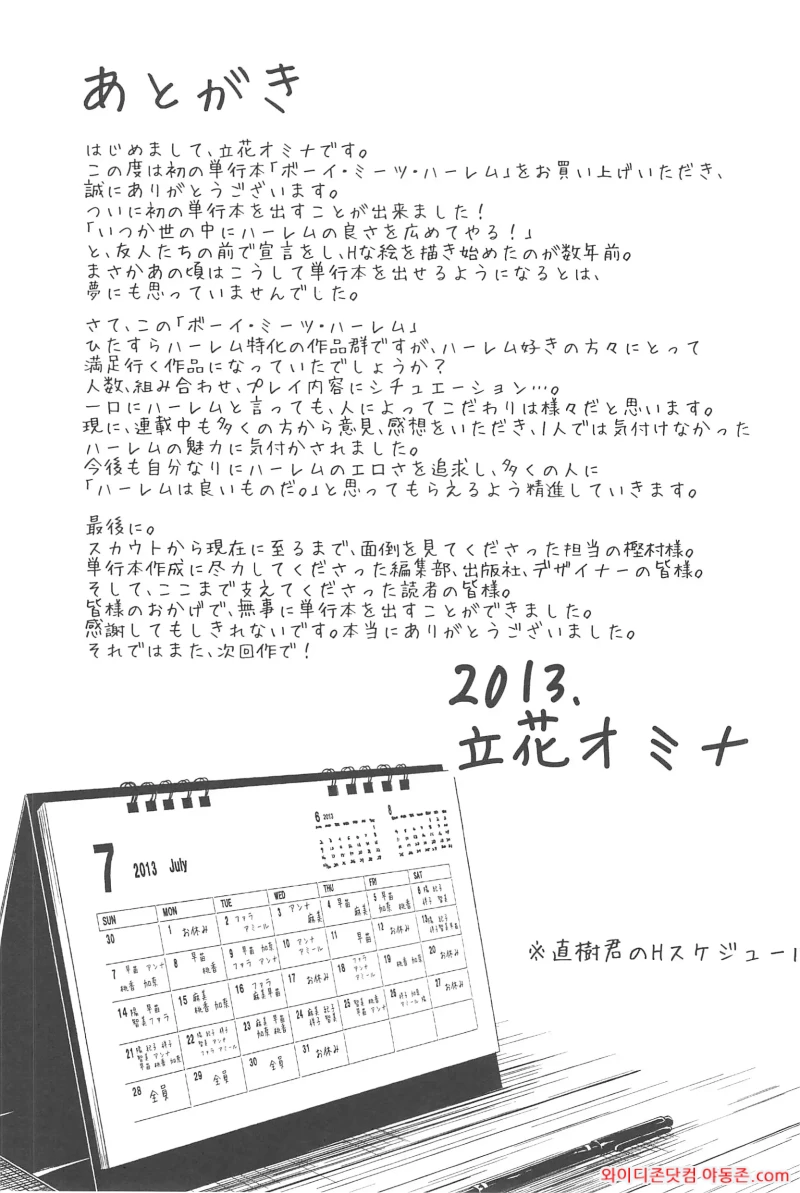 あとがき
はじめまして、立花オミナです。
この度は初の単行本「ボーイ・ミーツ・ハーレム」をお買い上げいただき、
誠にありがとうございます。
ついに初の単行本を出すことが出来ました!
「いつか世の中にハーレムの良さを広めてやる!」
と、友人たちの前で宣言をし、Hな絵を描き始めたのが数年前。
まさかあの頃はこうして単行本を出せるようになるとは、
夢にも思っていませんでした。
さて、この「ボーイ・ミーツ・ハーレム」
ひたすらハーレム特化の作品群ですが、ハーレム好きの方々にとって
満足行く作品になっていたでしょうか?
人数、組み合わせ、プレイ内容にシチュエーション…。
一口にハーレムと言っても、人によってこだわりは様々だと思います。
現に、連載中も多くの方から意見、感想をいただき、1人では気付けなかった
ハーレムの魅力に気付かされました。
今後も自分なりにハーレムのエロさを追求し、多くの人に
「ハーレムは良いものだ。」と思ってもらえるよう精進していきます。
最後に。
スカウトから現在に至るまで、面倒を見てくださった担当の樫村様。
単行本作成に尽力してくださった編集部、出版社、デザイナーの皆様。
そして、ここまで支えてくださった読者の皆様。
皆様のおかげで、無事に単行本を出すことができました。
感謝してもしきれないです。本当にありがとうございました。
それではまた、次回作で!
2013.
立花オミナ
6 2013
8
7 2013 July
SUN MON TUE WED THU FRI SAT
30 1 お休み 2 ファラ アミール 3 アンナ 麻美 4 早苗 麻美 5 早苗 加奈 桃香 6
7 早苗 アンナ 桃香 加奈 8 早苗 桃香 9 早苗 加奈 ファラ アンナ 10 アンナ アミール 11 早苗 12 お休み 13
14 陽 早苗 智美 ファラ 15 麻美 桃香 加奈 16 ファラ 麻美 早苗 17 お休み 18 ファラ アミール 19 20 お休み
21 22 23 麻美 早苗 加奈 桃香 24 25 26 27 お休み
28 全員 29 全員 30 全員 31 お休み
※直樹君のHスケジュール
와이디존닷컴 아동존.com